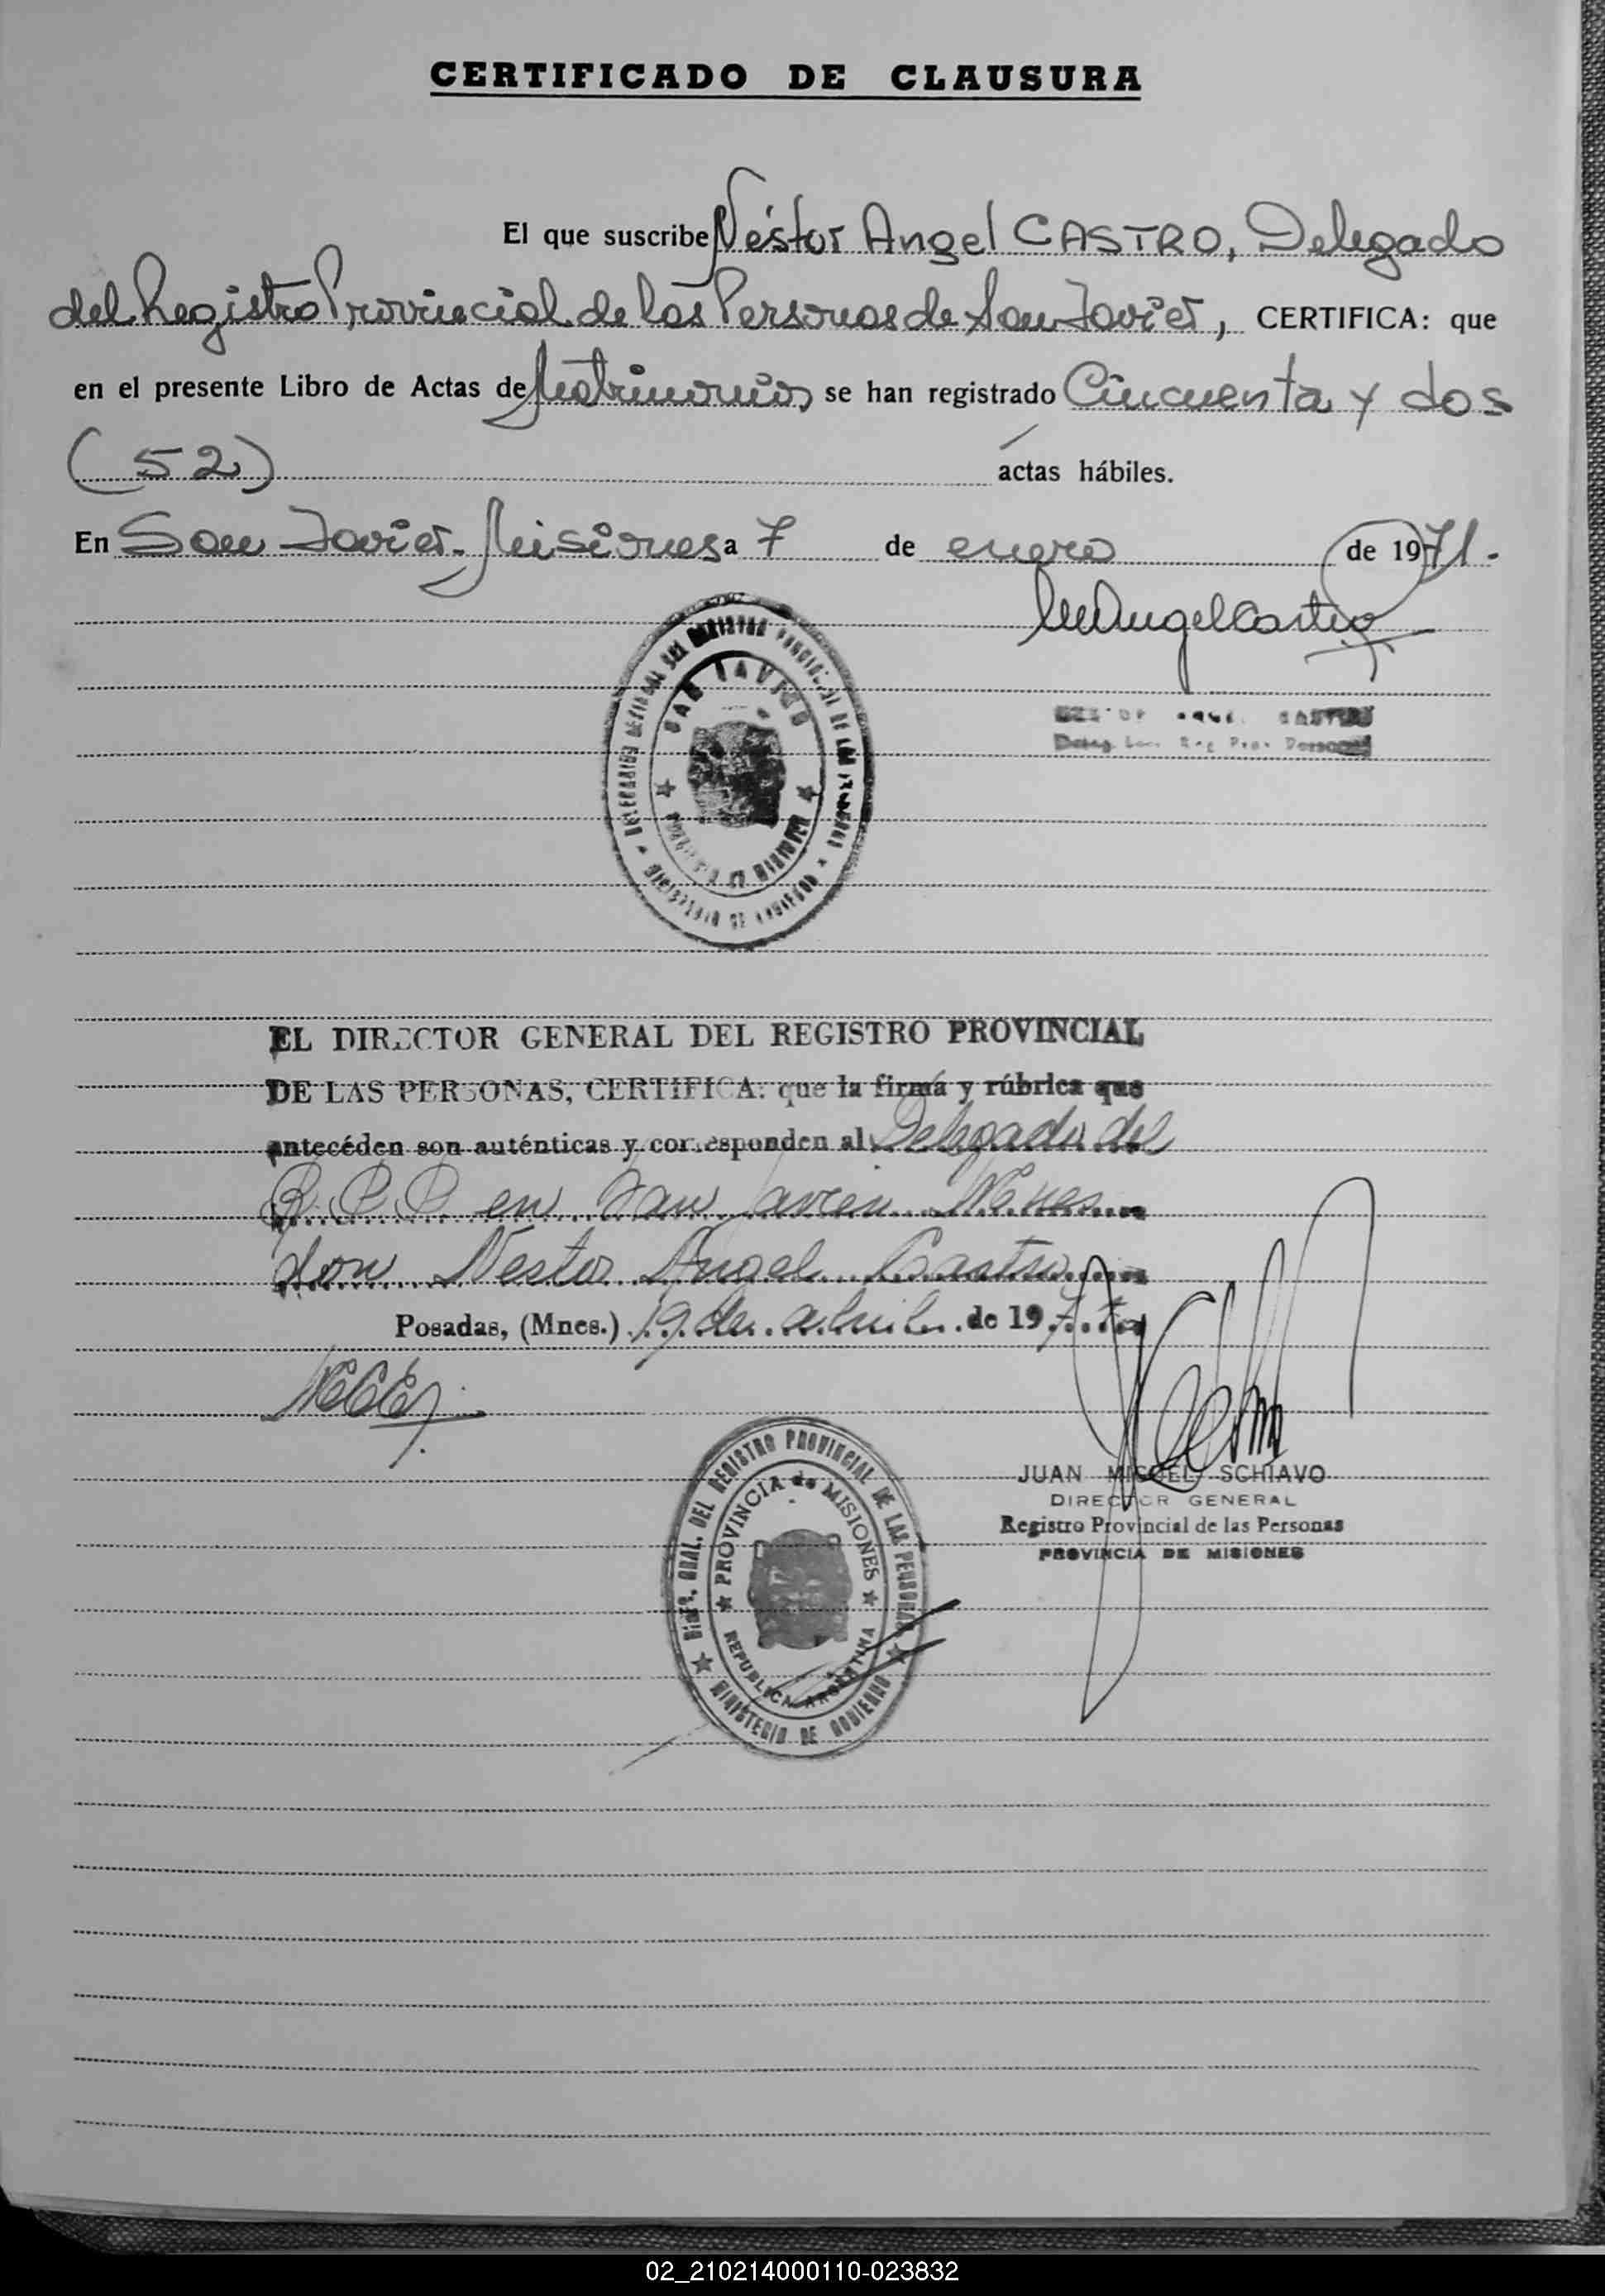 CERTIFICADO DE CLAUSURA
El que suscribe Néstor Angel CASTRO, Delegado
del Registro Provincial de las Personas de San Javier, CERTIFICA: que
en el presente Libro de Actas de Matrimonios se han registrado Cincuenta y dos
(52) actas hábiles.
En San Javier - Misiones a 7 de enero de 1971.-
SAN JAVIER
Deleg. Reg. Prov. Personas
EL DIRECTOR GENERAL DEL REGISTRO PROVINCIAL
DE LAS PERSONAS, CERTIFICA: que la firma y rúbrica que
antecéden son auténticas y corresponden al Delegado del
R.P.P. en San Javier Mnes.
don Nestor Angel Castro
Posadas, (Mnes.) 19 de abril de 197
JUAN MIGUEL SCHIAVO
DIRECTOR GENERAL
Registro Provincial de las Personas
PROVINCIA DE MISIONES
DIREC. GRAL. DEL REGISTRO PROVINCIAL DE LAS PERSONAS
PROVINCIA de MISIONES
REPUBLICA ARGENTINA
MINISTERIO DE GOBIERNO
02_210214000110-023832